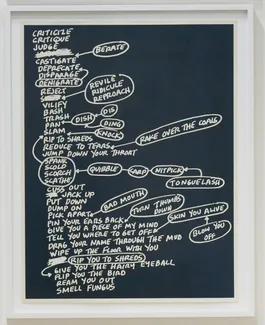 CRITICIZE
CRITIQUE
JUDGE
BERATE
CASTIGATE
DEPRECATE
DISPARAGE
DENIGRATE
REVILE
RIDICULE
REPROACH
REJECT
VILIFY
BASH
TRASH
DISH
DIS
PAN
DING
SLAM
KNOCK
RIP TO SHREDS
RAKE OVER THE COALS
REDUCE TO TEARS
JUMP DOWN YOUR THROAT
SPANK
SCOLD
SCORCH
QUIBBLE
CARP
NITPICK
SCATHE
TONGUELASH
CUSS OUT
JACK UP
PUT DOWN
BAD MOUTH
DUMP ON
TURN THUMBS DOWN
PICK APART
SKIN YOU ALIVE
PIN YOUR EARS BACK
GIVE YOU A PIECE OF MY MIND
BLOW YOU OFF
TELL YOU WHERE TO GET OFF
DRAG YOUR NAME THROUGH THE MUD
WIPE UP THE FLOOR WITH YOU
RIP YOU TO SHREDS
GIVE YOU THE HAIRY EYEBALL
FLIP YOU THE BIRD
REAM YOU OUT
SMELL FUNGUS